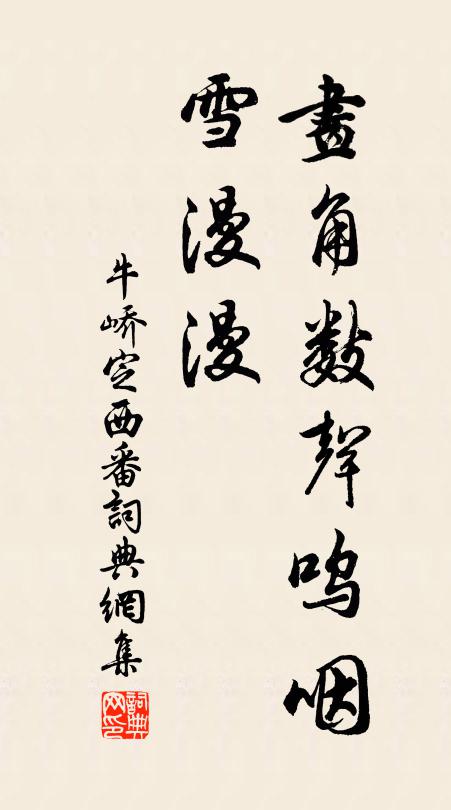 畫角數聲嗚咽
雪漫漫
牛嶠定西番詞典網集
詞典网印